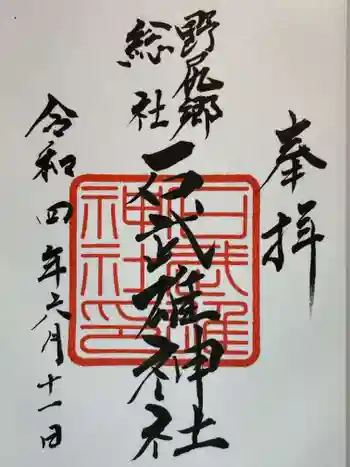 奉拝
野尻郷
総社
石武雄神社
石武雄神社印
令和四年六月十一日